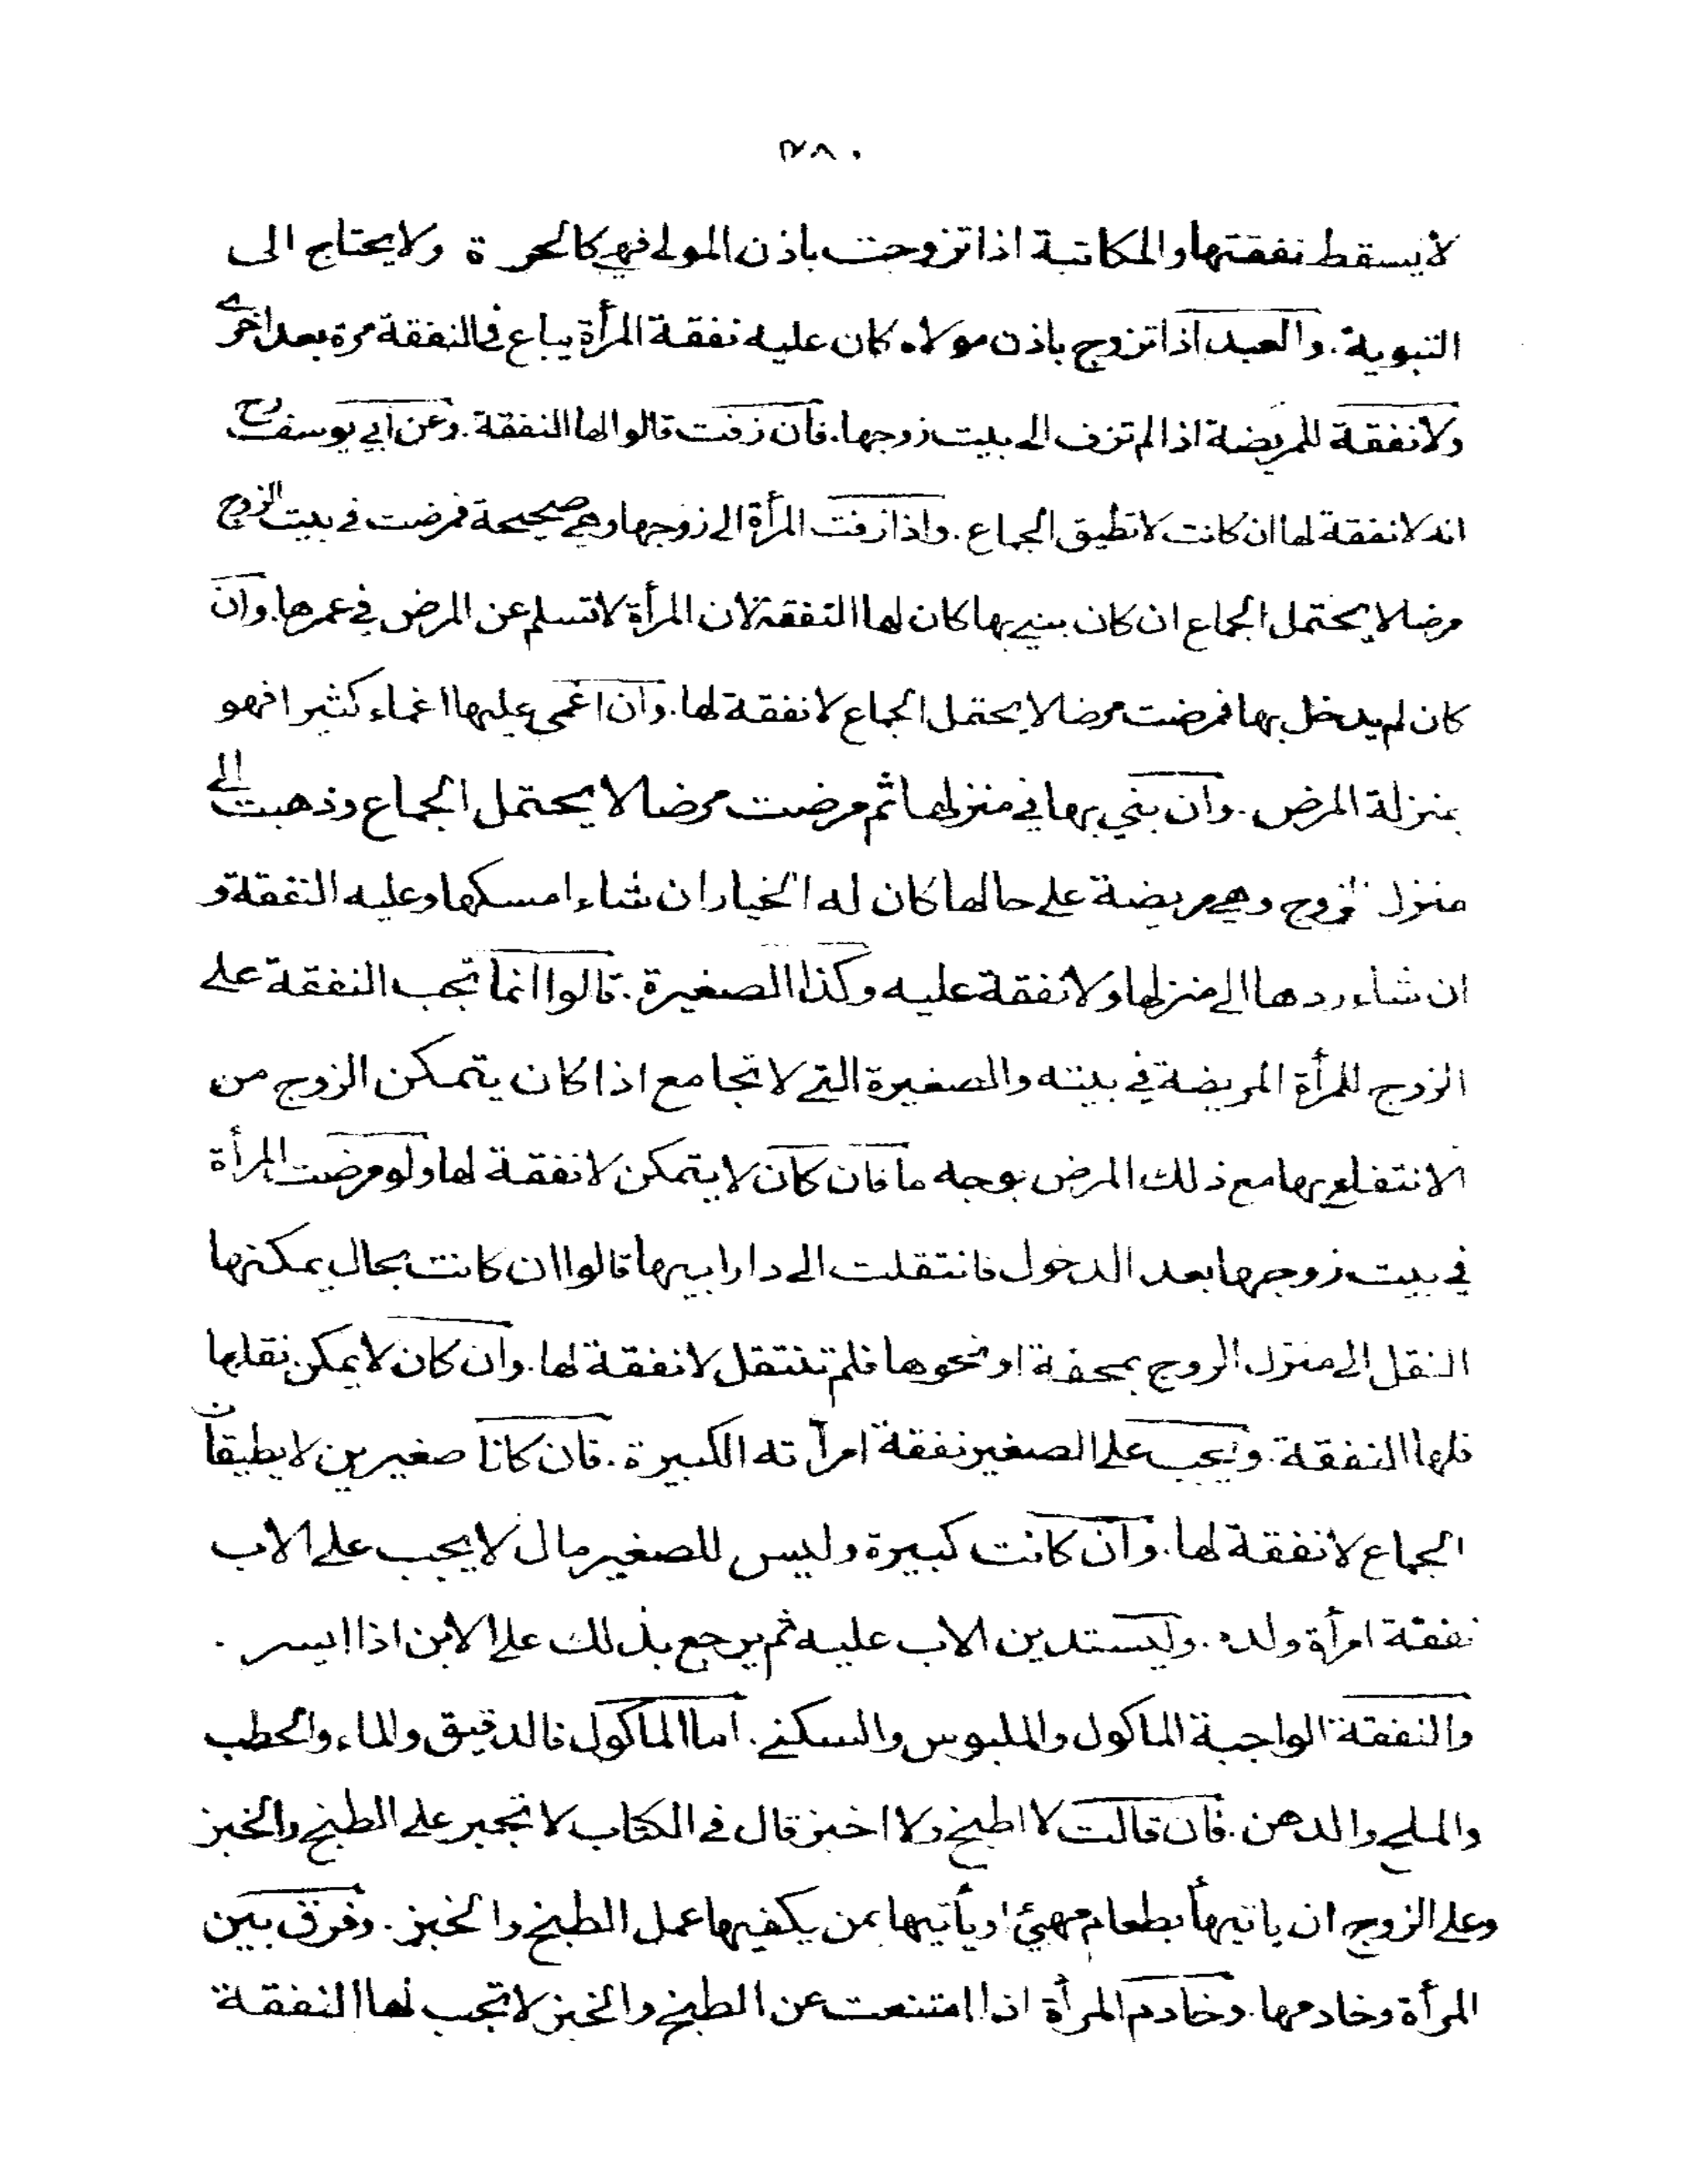 ٢٨٠
لا يسقط نفقتها والمكاتبة اذا تزوجت باذن المولى فهي كالحرة ولا يحتاج الى
التبوية. والعبد اذا تزوج باذن مولاه كان عليه نفقة المرأة يباع في النفقة مرة بعد اخرى
ولا نفقة للمريضة اذا لم تزف الى بيت زوجها. فان زفت قالوا لها النفقة. وعن أبي يوسف رح
انه لا نفقة لها ان كانت لا تطيق الجماع. واذا زفت المرأة الى زوجها وهي صحيحة فمرضت في بيت الزوج
مرضا لا يحتمل الجماع ان كان بنى بها كان لها النفقة لان المرأة لا تسلم عن المرض في عمرها. وان
كان لم يدخل بها فمرضت مرضا لا يحتمل الجماع لا نفقة لها. وان اغمي عليها اغماء كثيرا فهو
بمنزلة المرض. وان بنى بها في منزلها ثم مرضت مرضا لا يحتمل الجماع وذهبت الى
منزل الزوج وهي مريضة على حالها كان له الخيار ان شاء امسكها وعليه النفقة و
ان شاء ردها الى منزلها ولا نفقة عليه وكذا الصغيرة. قالوا انما تجب النفقة على
الزوج للمرأة المريضة في بيته والصغيرة التي لا تجامع اذا كان يتمكن الزوج من
الانتفاع بها مع ذلك المرض بوجه ما فان كان لا يتمكن لا نفقة لها ولو مرضت المرأة
في بيت زوجها بعد الدخول فانتقلت الى دار ابيها قالوا ان كانت بحال يمكنها
النقل الى منزل الزوج بمحفة او نحوها فلم تنتقل لا نفقة لها. وان كان لا يمكن نقلها
فلها النفقة. ويجب على الصغير نفقة امرأته الكبيرة. فان كانا صغيرين لا يطيقان
الجماع لا نفقة لها. وان كانت كبيرة وليس للصغير مال لا يجب على الاب
نفقة امرأة ولده. وليستدين الاب عليه ثم يرجع بذلك على الابن اذا ايسر.
والنفقة الواجبة الماكول والملبوس والسكنى. اما الماكول فالدقيق والماء والحطب
والملح والدهن. فان قالت لا اطبخ ولا اخبز قال في الكتاب لا تجبر على الطبخ والخبز
وعلى الزوج ان ياتيها بطعام مهيئ او يأتيها بمن يكفيها عمل الطبخ والخبز. وفرق بين
المرأة وخادمها. وخادم المرأة اذا امتنعت عن الطبخ والخبز لا تجب لها النفقة